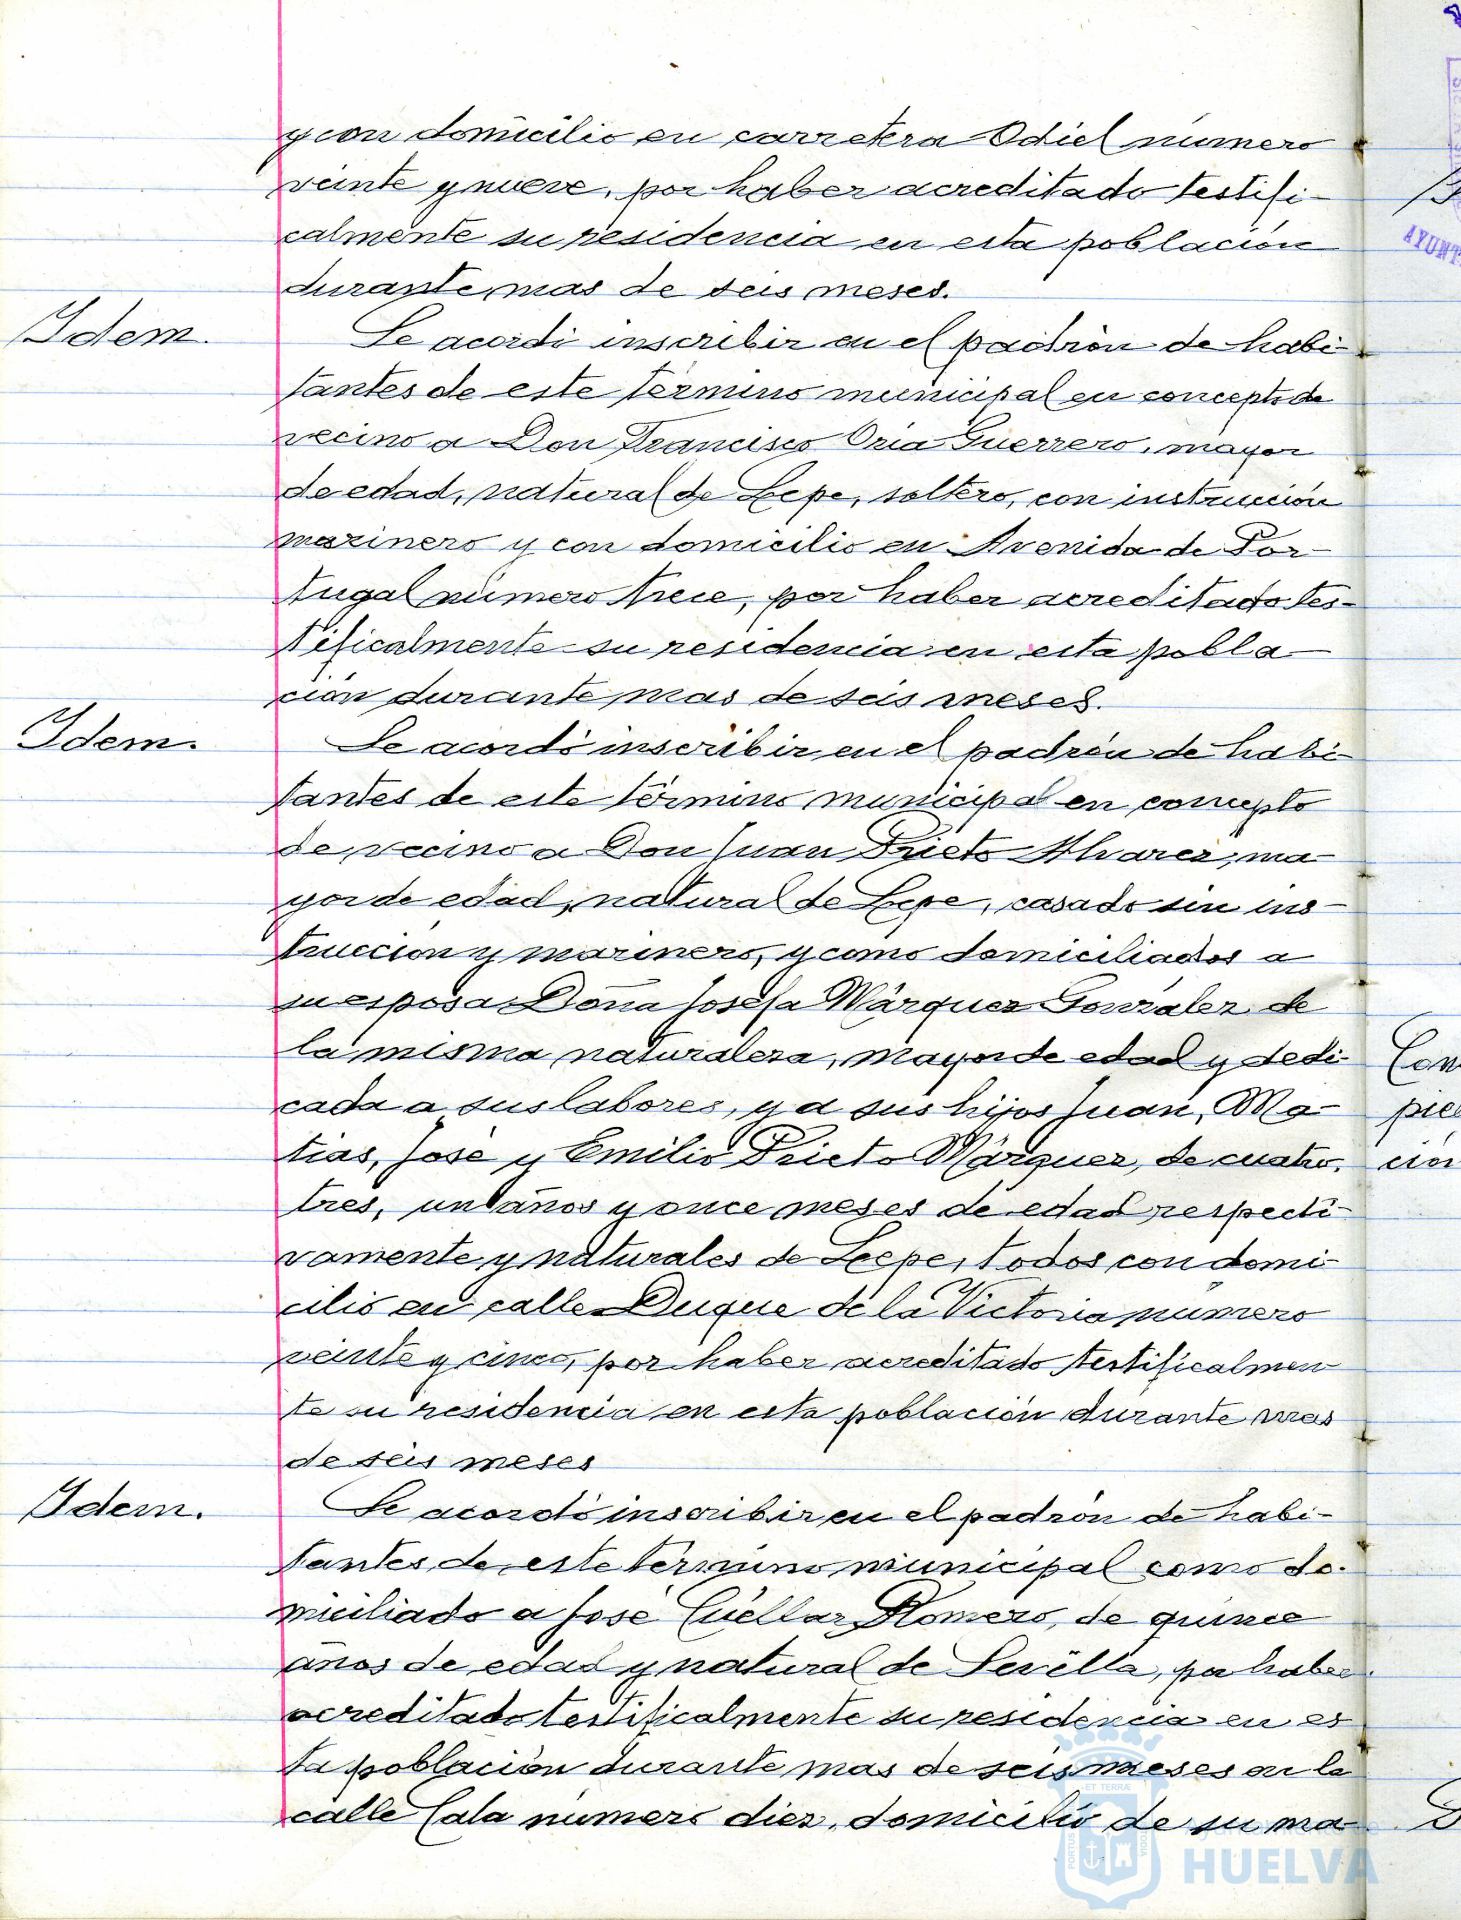 y con domicilio en carretera Odiel número
veinte y nueve, por haber acreditado testifi-
calmente su residencia en esta población
durante mas de seis meses.
Idem.
Se acordó inscribir en el padrón de habi-
tantes de este término municipal en concepto de
vecino a Don Francisco Oria Guerrero, mayor
de edad, natural de Lepe, soltero, con instrucción
marinero y con domicilio en Avenida de Por-
tugal número trece, por haber acreditado tes-
tificalmente su residencia en esta pobla-
ción durante mas de seis meses.
Idem.
Se acordó inscribir en el padrón de habi-
tantes de este término municipal en concepto
de vecino a Don Juan Prieto Alvarez, ma-
yor de edad, natural de Lepe, casado sin ins-
trucción y marinero, y como domiciliados a
su esposa Doña Josefa Márquez González de
la misma naturaleza, mayor de edad y dedi-
cada a sus labores, y a sus hijos Juan, Ma-
tias, José y Emilio Prieto Márquez, de cuatro,
tres, un años y once meses de edad respecti-
vamente y naturales de Lepe, todos con domi-
cilio en calle Duque de la Victoria número
veinte y cinco, por haber acreditado testificalmen-
te su residencia en esta población durante mas
de seis meses
Idem.
Se acordó inscribir en el padrón de habi-
tantes de este término municipal como do-
miciliado a José Cuéllar Romero, de quince
años de edad y natural de Sevilla, por haber
acreditado testificalmente su residencia en es
ta población durante mas de seis meses en la
calle Cala número diez, domicilio de su ma-
HUELVA